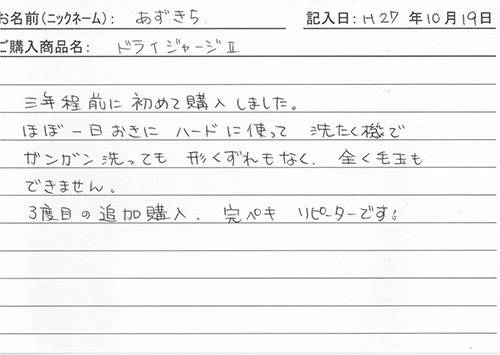 お名前(ニックネーム): あずき5. 記入日: H27 年10月19日
ご購入商品名: ドライジャージⅡ
三年程前に初めて購入しました。
ほぼ一日おきに ハードに使って 洗たく機で
ガンガン洗っても 形くずれもなく、全く毛玉も
できません。
3度目の追加購入、完ペキ リピーターです。